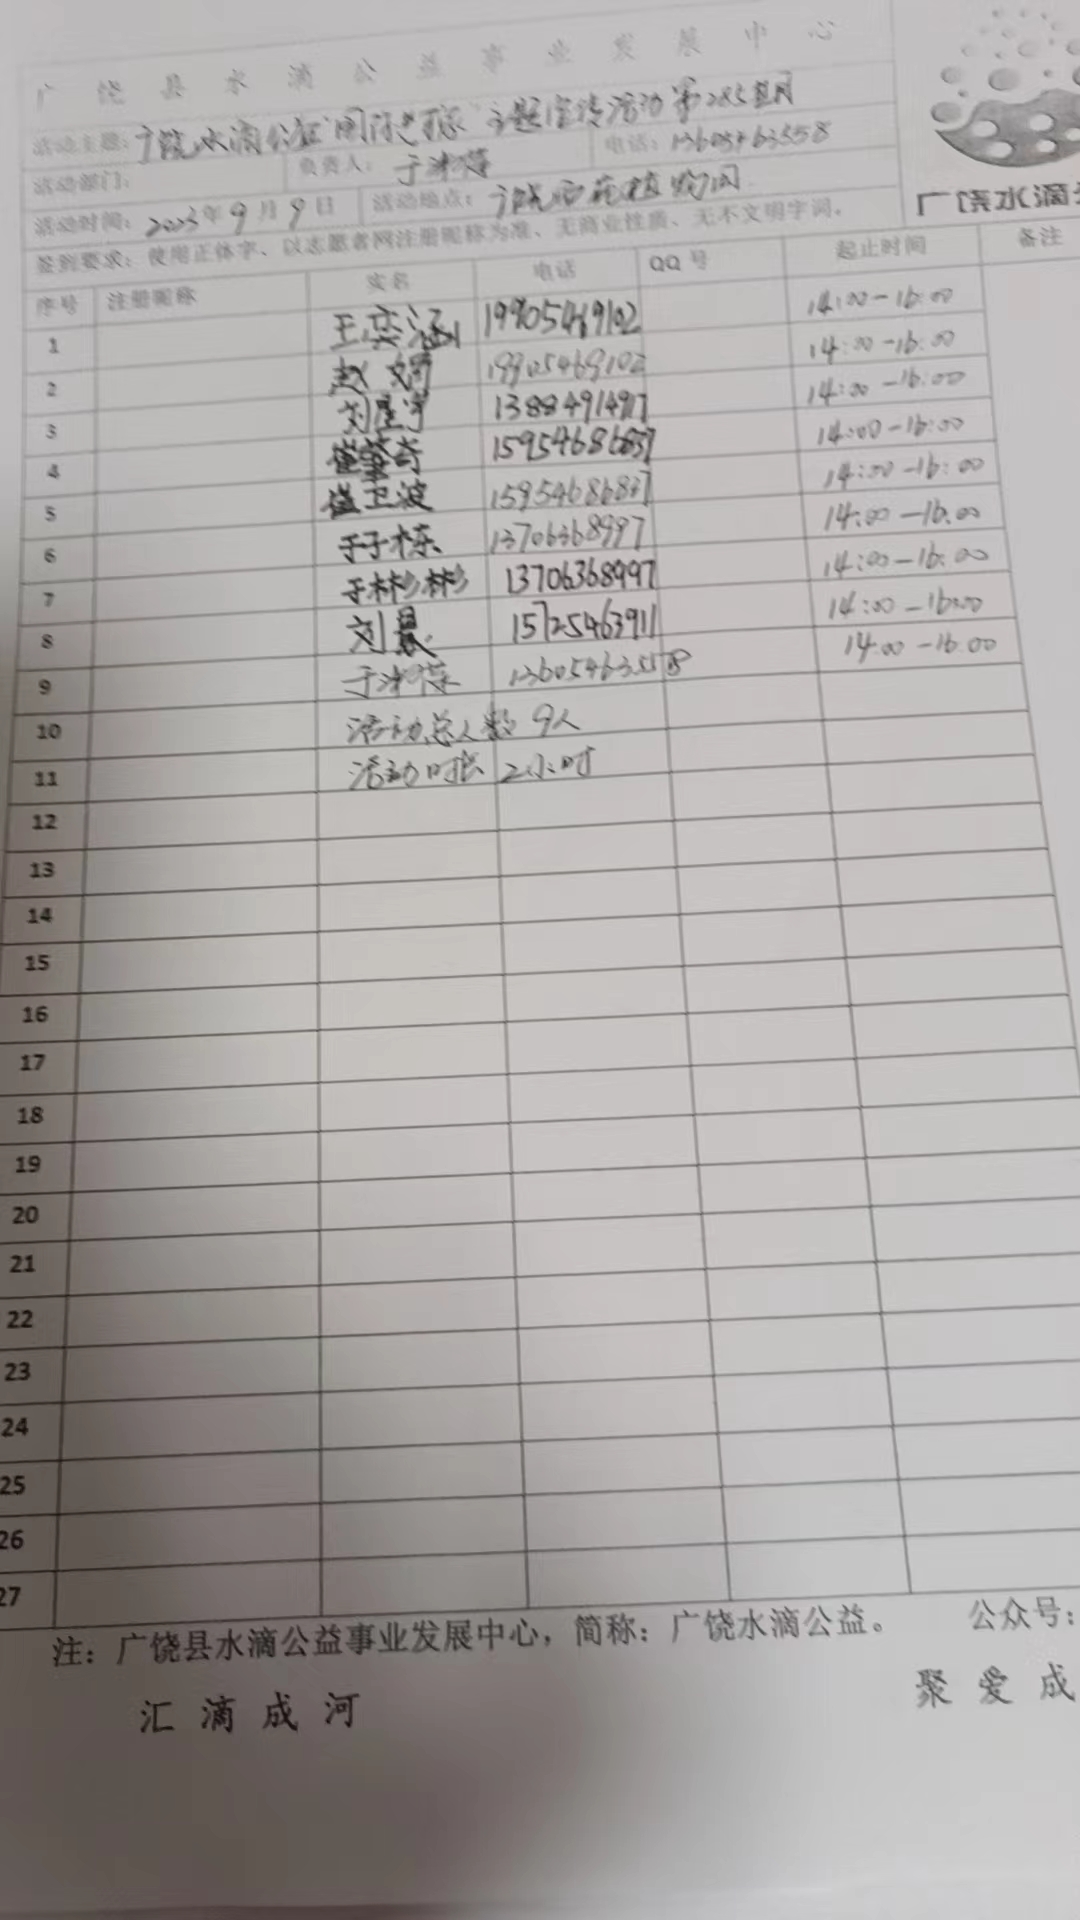 广饶县水滴公益事业发展中心
活动主题: 广饶水滴公益 主题宣传活动第285期
活动部门: 负责人: 于 电话: 13605463558
活动时间: 2023年9月9日 活动地点: 广饶 植物园
广饶水滴
签到要求: 使用正体字、以志愿者网注册昵称为准、无商业性质、无不文明字词。
序号 注册昵称 实名 电话 QQ号 起止时间 备注
1 王奕涵 19905469102 14:00-16:00
2 赵 19905469102 14:00-16:00
3 刘 宇 13884914917 14:00-16:00
4 崔肇奇 15954686837 14:00-16:00
5 崔卫波 15954686837 14:00-16:00
6 于子栋 13706368997 14:00-16:00
7 于彬彬 13706368997 14:00-16:00
8 刘晨 15725463911 14:00-16:00
9 于 13605463558 14:00-16:00
10 活动总人数 9人
11 活动时长 2小时
12
13
14
15
16
17
18
19
20
21
22
23
24
25
26
27
注: 广饶县水滴公益事业发展中心, 简称: 广饶水滴公益。 公众号:
汇滴成河 聚爱成